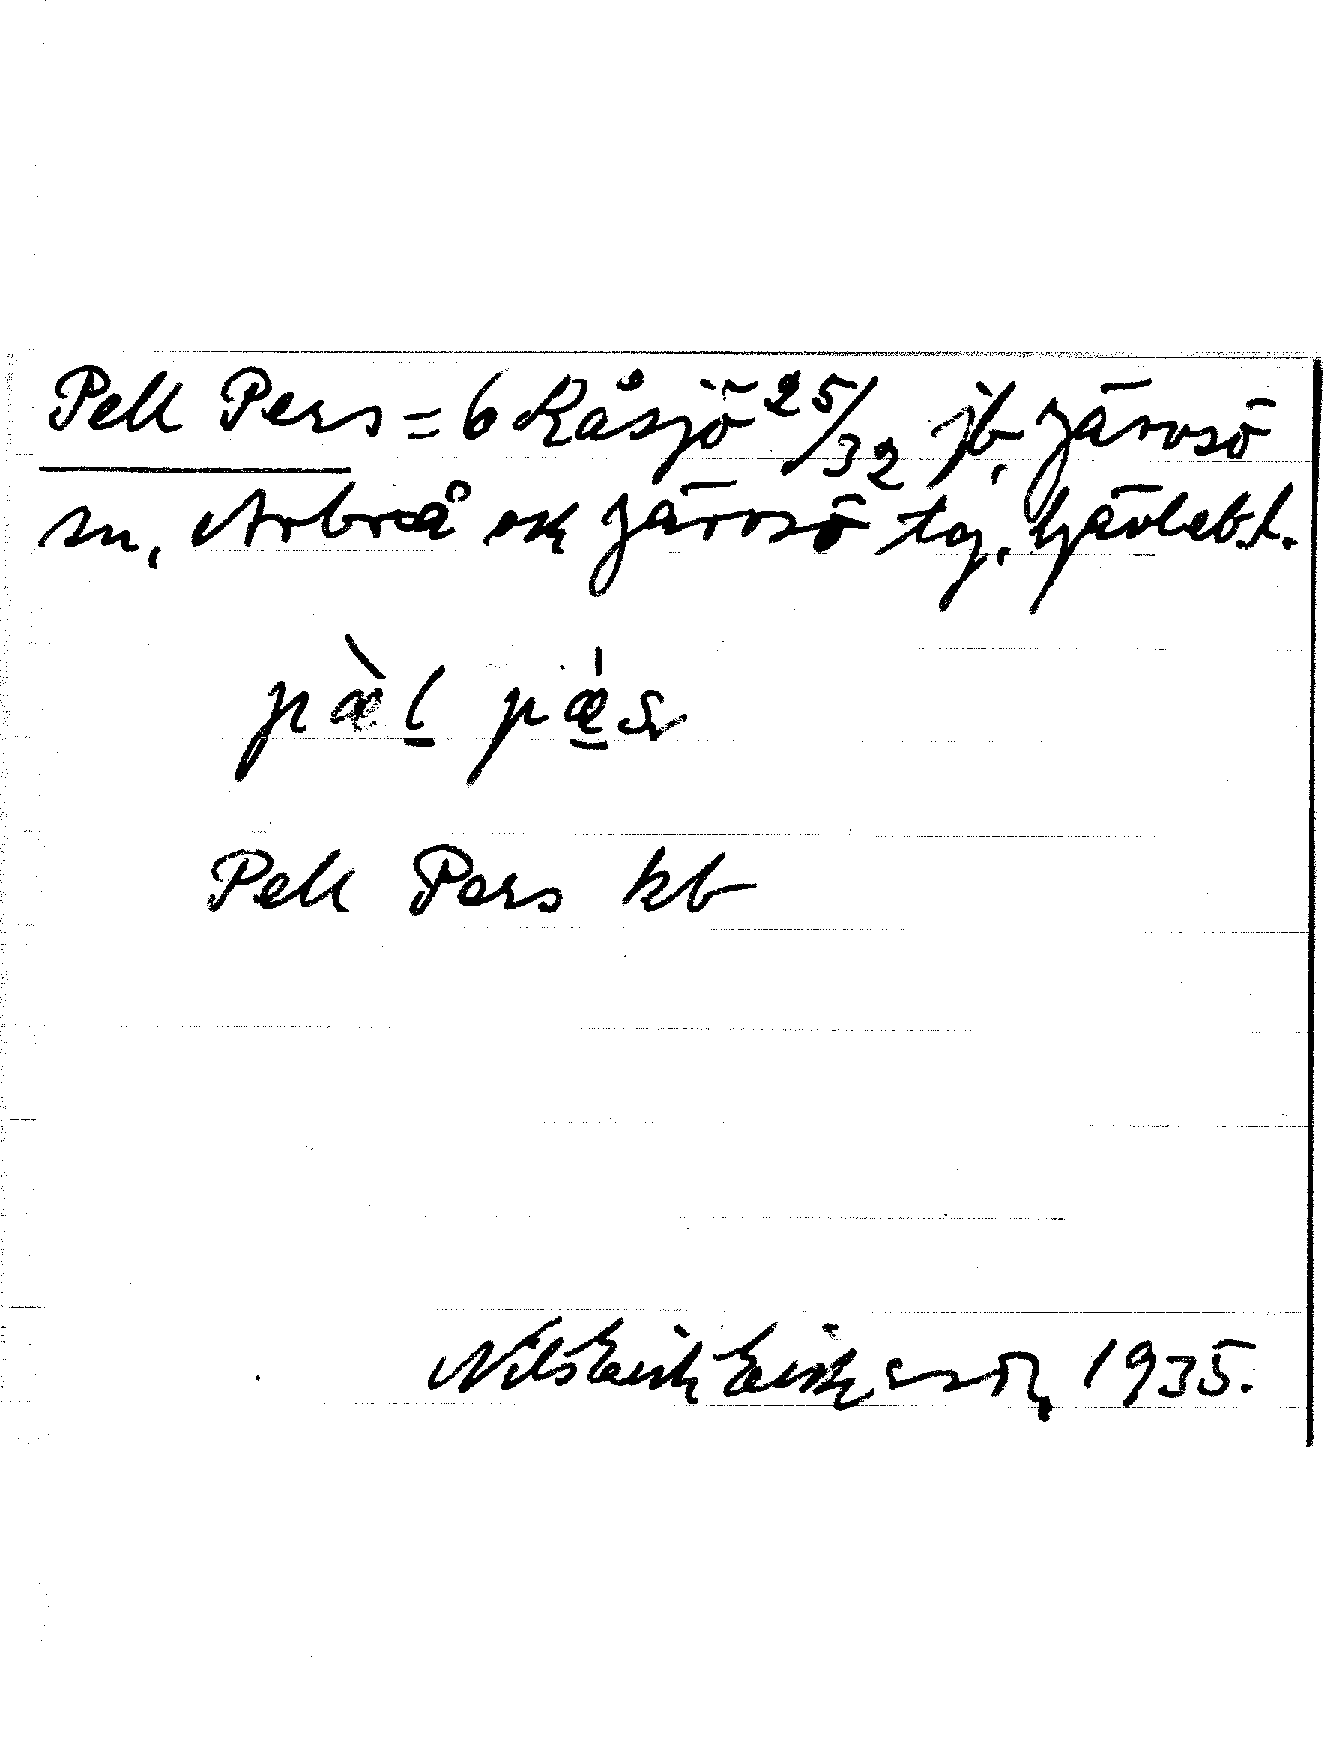 Pell Pers = 6 Kåsjö 25/32 jb, Järvsö
sn, Arbrå ok Järvsö tg. Gävlebt.
pæ̀l̲ pǽ̲s
Pell Pers kb
Nils Erik Eriksson, 1935.